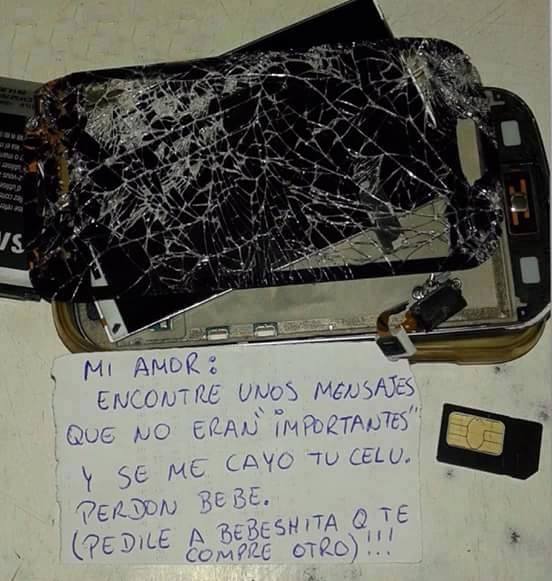 MI AMOR:
ENCONTRE UNOS MENSAJES
QUE NO ERAN "IMPORTANTES"
Y SE ME CAYO TU CELU.
PERDON BEBE.
(PEDILE A BEBESHITA Q TE
COMPRE OTRO)!!!